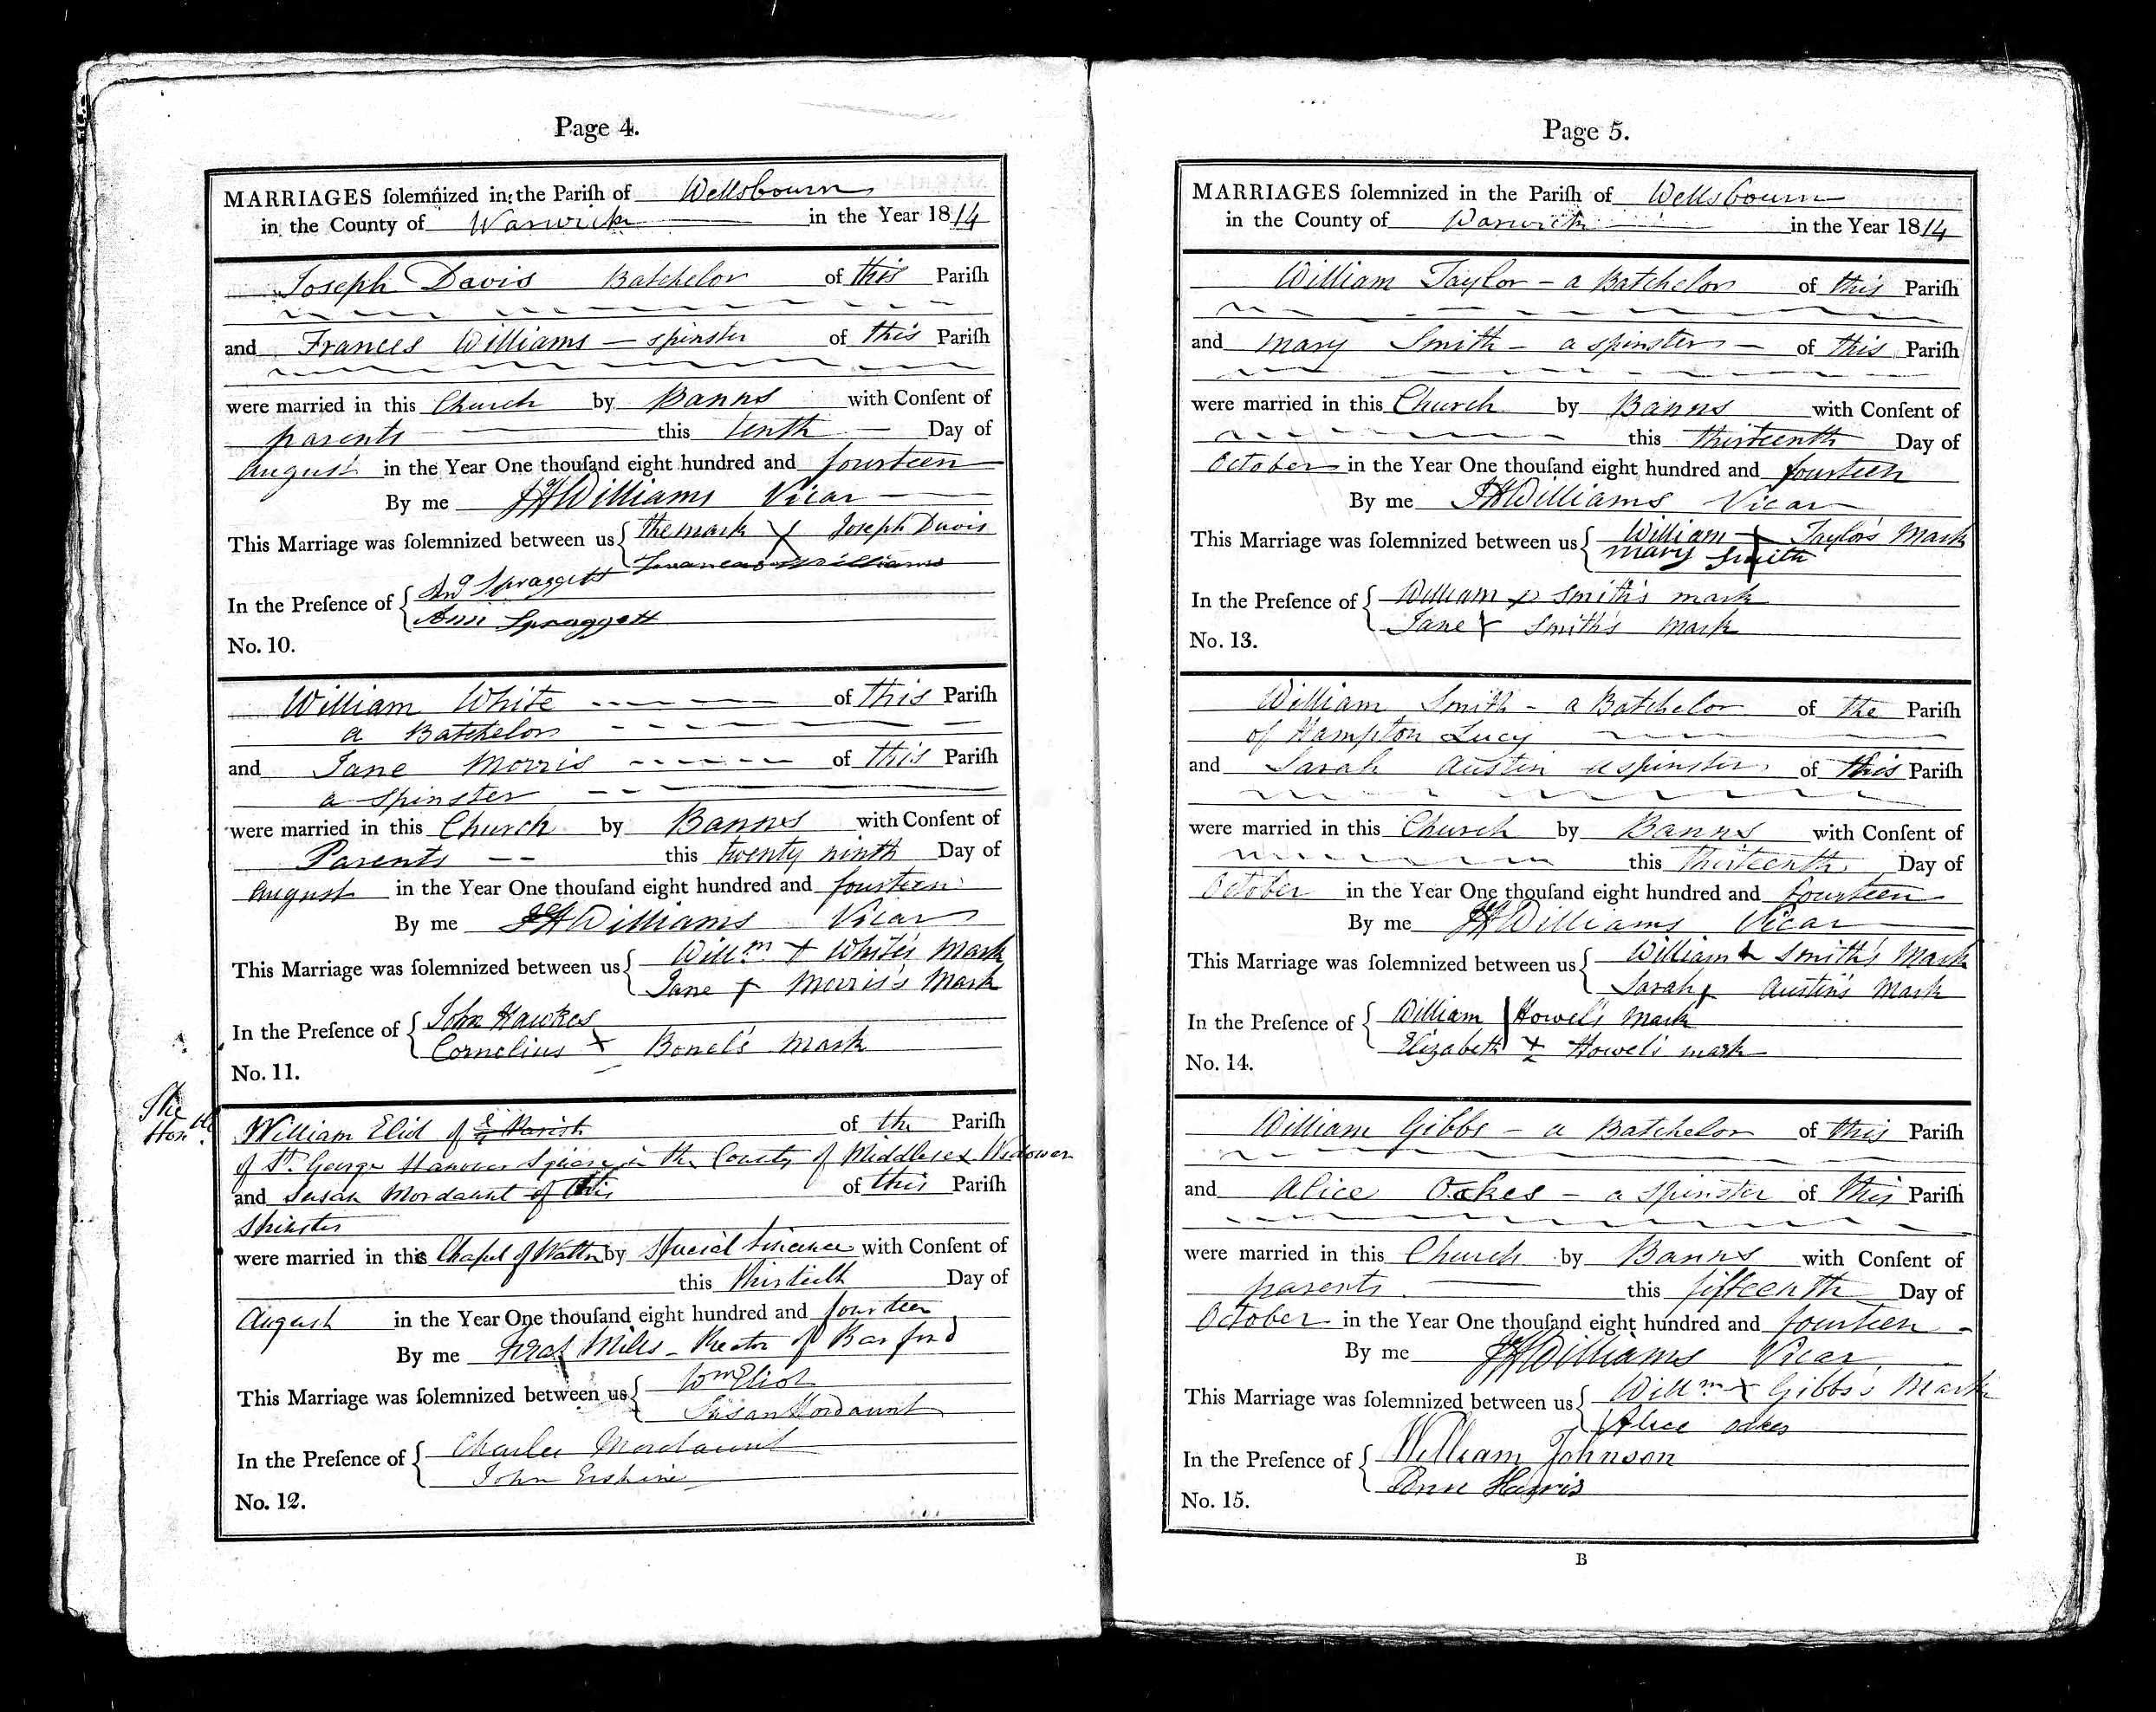 Page 4.
MARRIAGES ſolemnized in the Pariſh of Wellsbourn
in the County of Warwick in the Year 1814
Joseph Davis Batchelor of this Pariſh
and Frances Williams — spinster of this Pariſh
were married in this Church by Banns with Conſent of
parents this tenth Day of
August in the Year One thouſand eight hundred and fourteen
By me JHWilliams Vicar
This Marriage was ſolemnized between us the mark X Joseph Davis
Frances Williams
In the Preſence of Spraggett
Ann Spraggett
No. 10.
William White of this Pariſh
a Batchelor
and Jane Morris of this Pariſh
a spinster
were married in this Church by Banns with Conſent of
Parents this twenty ninth Day of
August in the Year One thouſand eight hundred and fourteen
By me JHWilliams Vicar
This Marriage was ſolemnized between us Willm + White's Mark
Jane + Morris's Mark
In the Preſence of John Hawkes
Cornelius X Bonel's Mark
No. 11.
The
Honble
William Eliot of ye Parish of the Pariſh
of St. George Hanover Square in the County of Middlesex Widower
and Susan Mordaunt of this of this Pariſh
Spinster
were married in this Chapel of Walton by Special Licence with Conſent of
this thirtieth Day of
August in the Year One thouſand eight hundred and fourteen
By me Mills - Rector of Barford
This Marriage was ſolemnized between us Wm Eliot
Susan Mordaunt
In the Preſence of Charles Mordaunt
John Erskine
No. 12.
Page 5.
MARRIAGES ſolemnized in the Pariſh of Wellsbourn
in the County of Warwick in the Year 1814
William Taylor - a Batchelor of this Pariſh
and Mary Smith - a spinster - of this Pariſh
were married in this Church by Banns with Conſent of
this thirteenth Day of
October in the Year One thouſand eight hundred and fourteen
By me JHWilliams Vicar
This Marriage was ſolemnized between us William + Taylor's Mark
Mary Smith
In the Preſence of William X Smith's mark
Jane + Smith's Mark
No. 13.
William Smith - a Batchelor of the Pariſh
of Hampton Lucy
and Sarah Austin a spinster of this Pariſh
were married in this Church by Banns with Conſent of
this thirteenth Day of
October in the Year One thouſand eight hundred and fourteen
By me JHWilliams Vicar
This Marriage was ſolemnized between us William + Smith's Mark
Sarah + Austin's Mark
In the Preſence of William | Howel's Mark
Elizabeth + Howel's mark
No. 14.
William Gibbs - a Batchelor of this Pariſh
and Alice Oakes - a spinster of this Pariſh
were married in this Church by Banns with Conſent of
parents this fifteenth Day of
October in the Year One thouſand eight hundred and fourteen -
By me JHWilliams Vicar
This Marriage was ſolemnized between us Willm + Gibbs's Mark
Alice Oakes
In the Preſence of William Johnson
Ann Harris
No. 15.
B